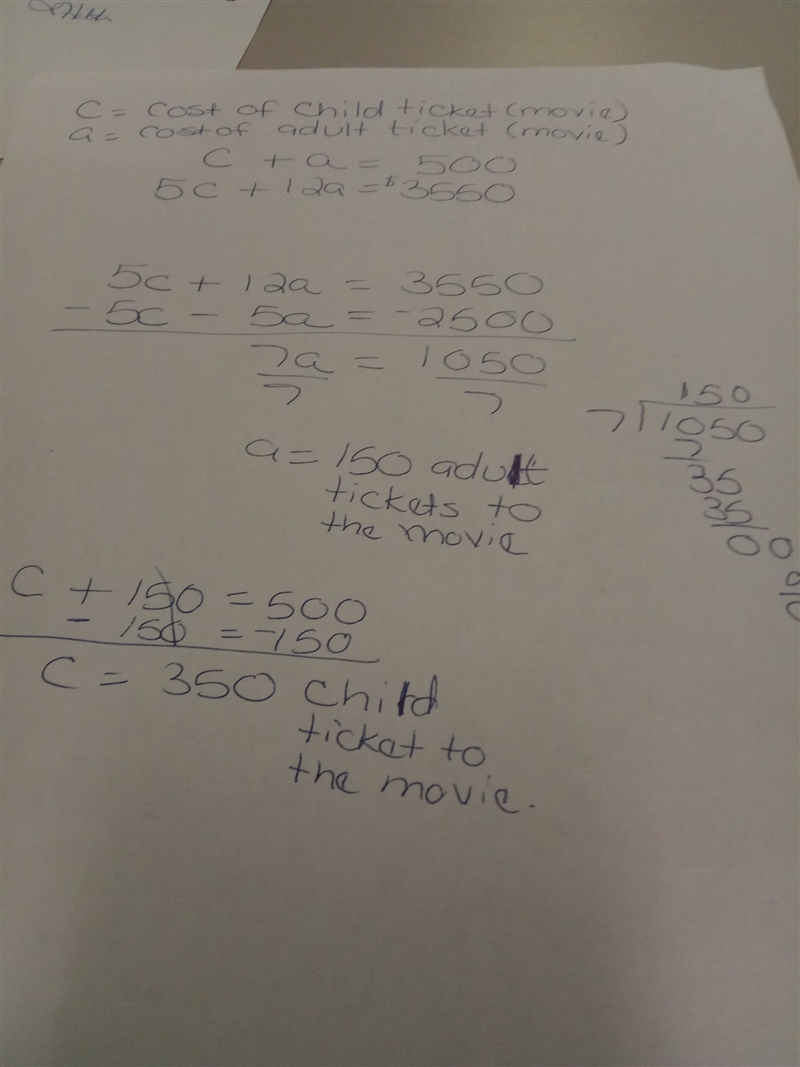 C = cost of child ticket (movie)
a = cost of adult ticket (movie)
C + a = 500
5c + 12a = $3550
5c + 12a = 3550
- 5c - 5a = -2500
7a = 1050
7 7
150
7 1050
7
35
35
00
a = 150 adult
tickets to
the movie
C + 150 = 500
- 150 = -150
C = 350 child
ticket to
the movie.